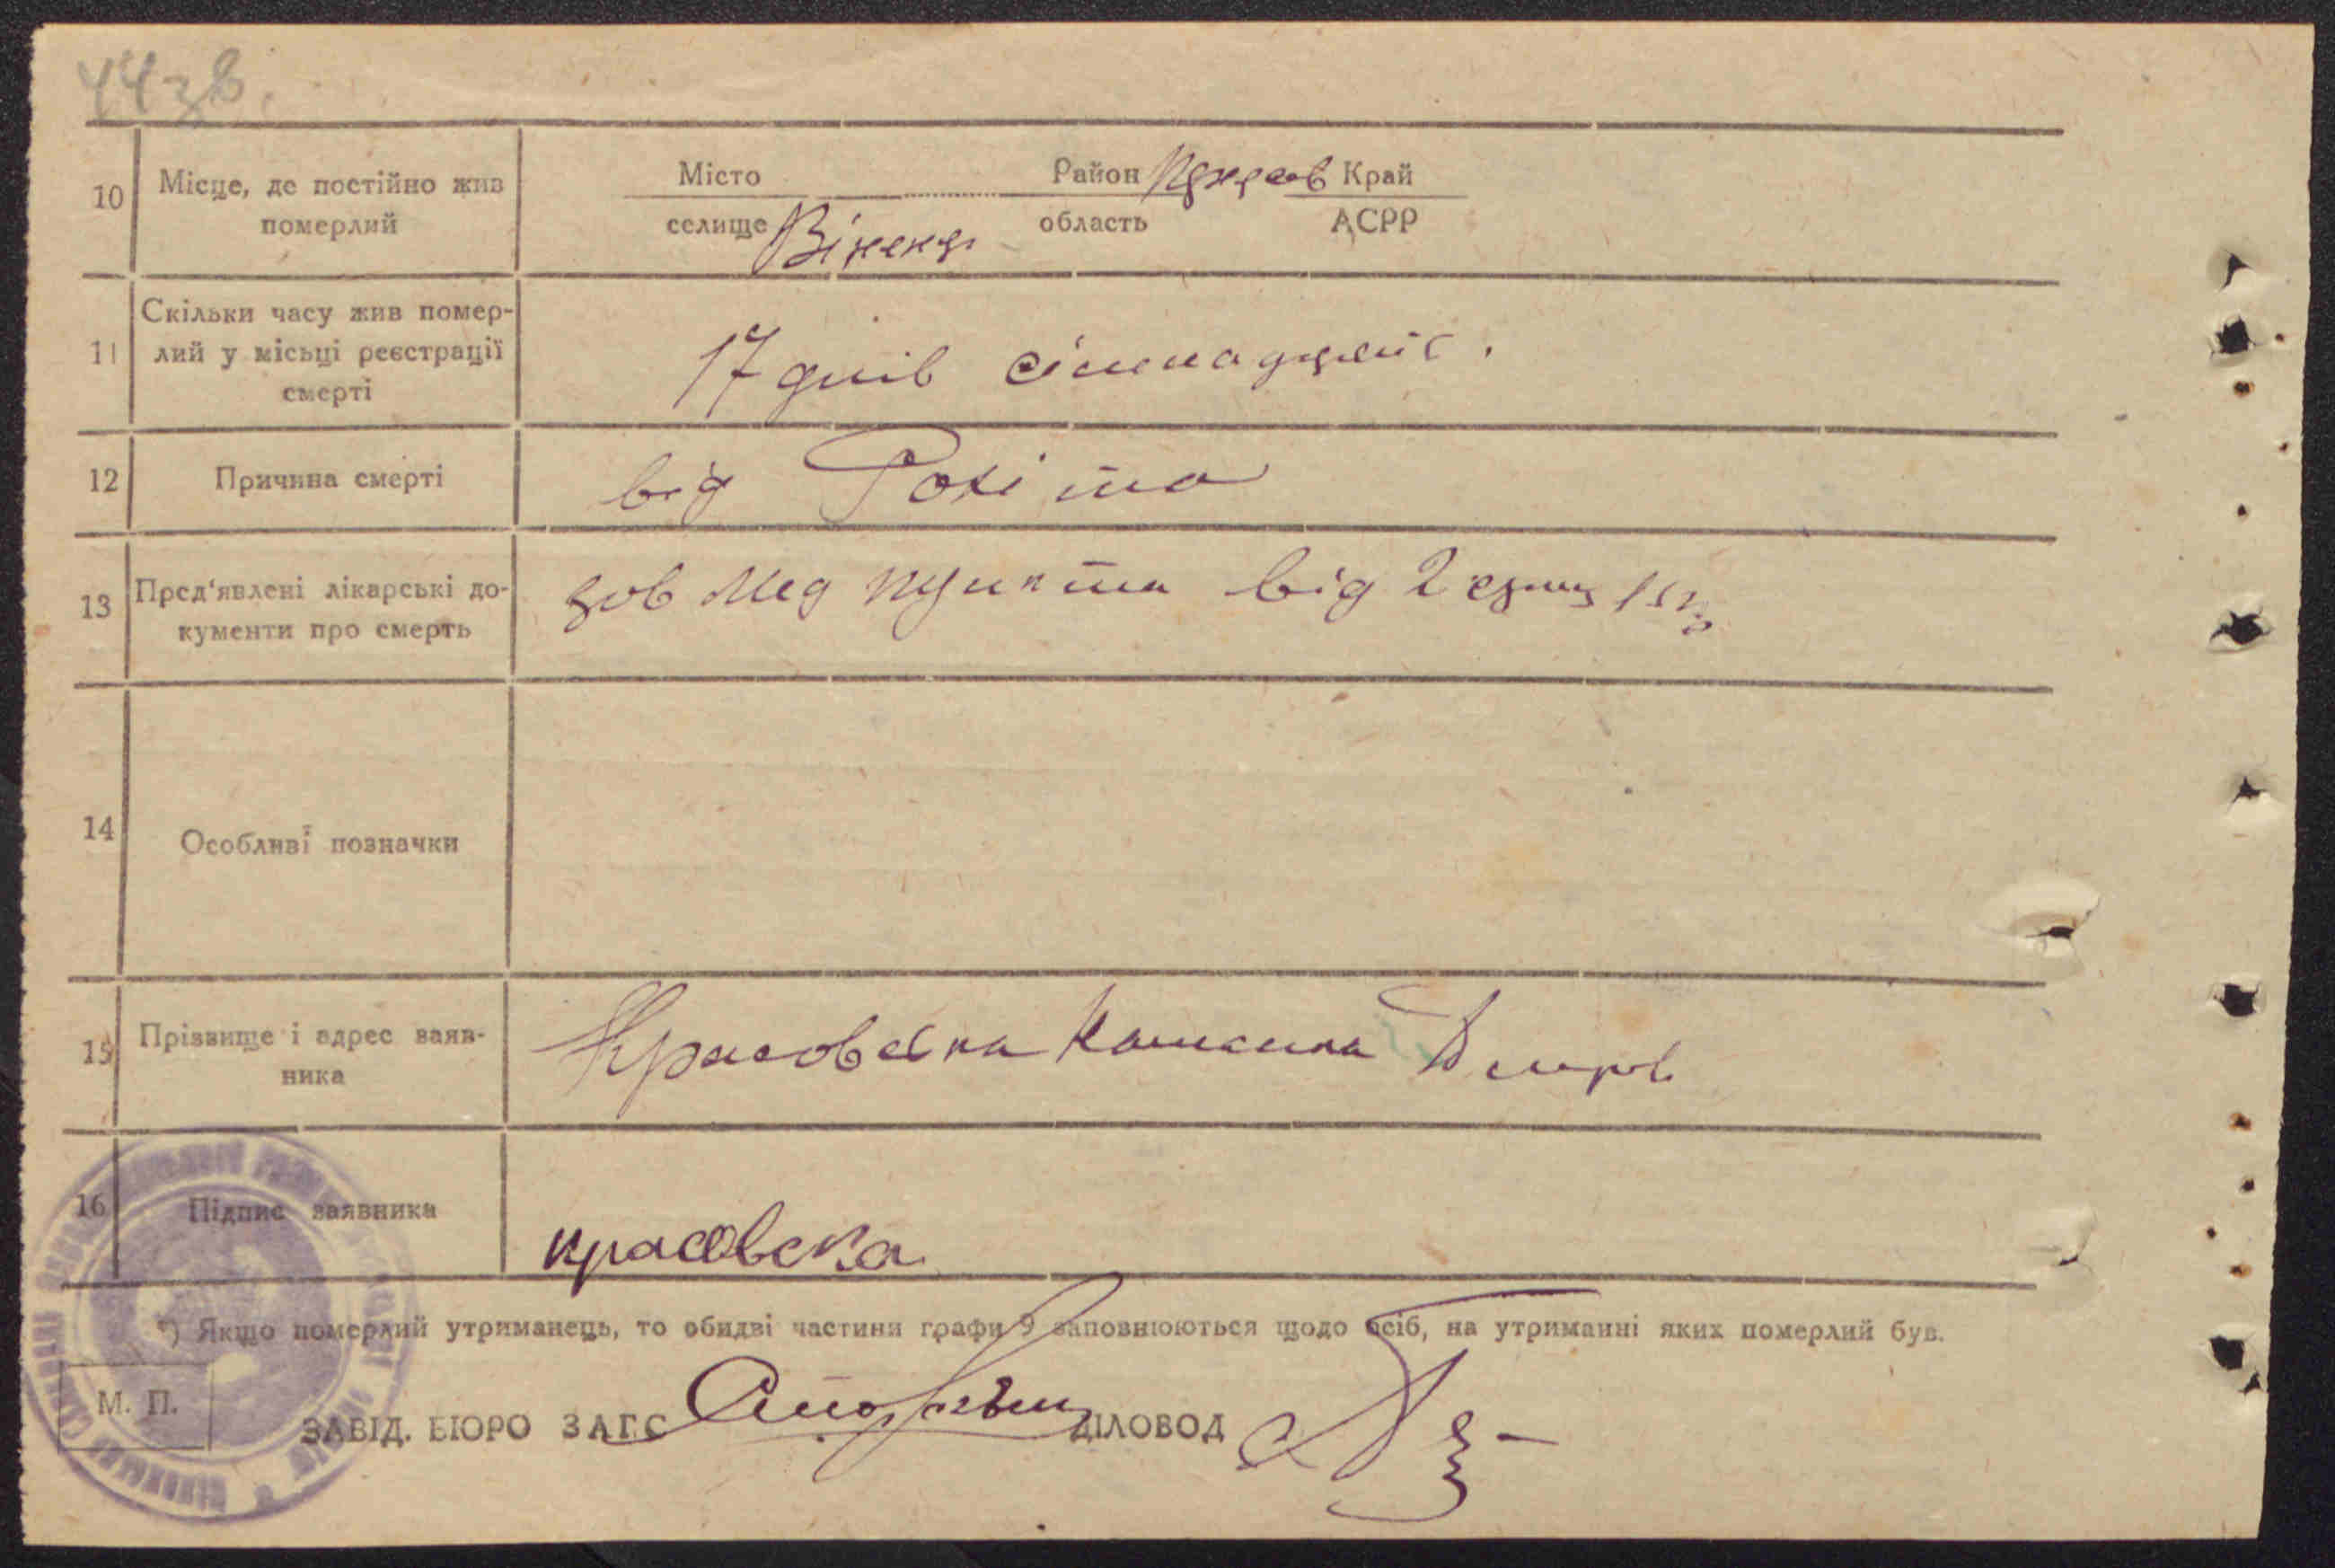 44зв.
10
Місце, де постійно жив
померлий
Місто Район Край
селище Вінинці область АСРР
11
Скільки часу жив помер-
лий у місьці реєстрації
смерті
17 днів сімнадцять.
12
Причина смерті
від Рахіта
13
Пред'явлені лікарські до-
кументи про смерть
дов Мед пункта від 2
14
Особливі позначки
15
Прізвище і адрес заяв-
ника
Красовська
16
Підпис заявника
красовська
*) Якщо померлий утриманець, то обидві частини графи 9 заповнюються щодо осіб, на утриманні яких померлий був.
М. П.
ЗАВІД. БЮРО ЗАГС ДІЛОВОД